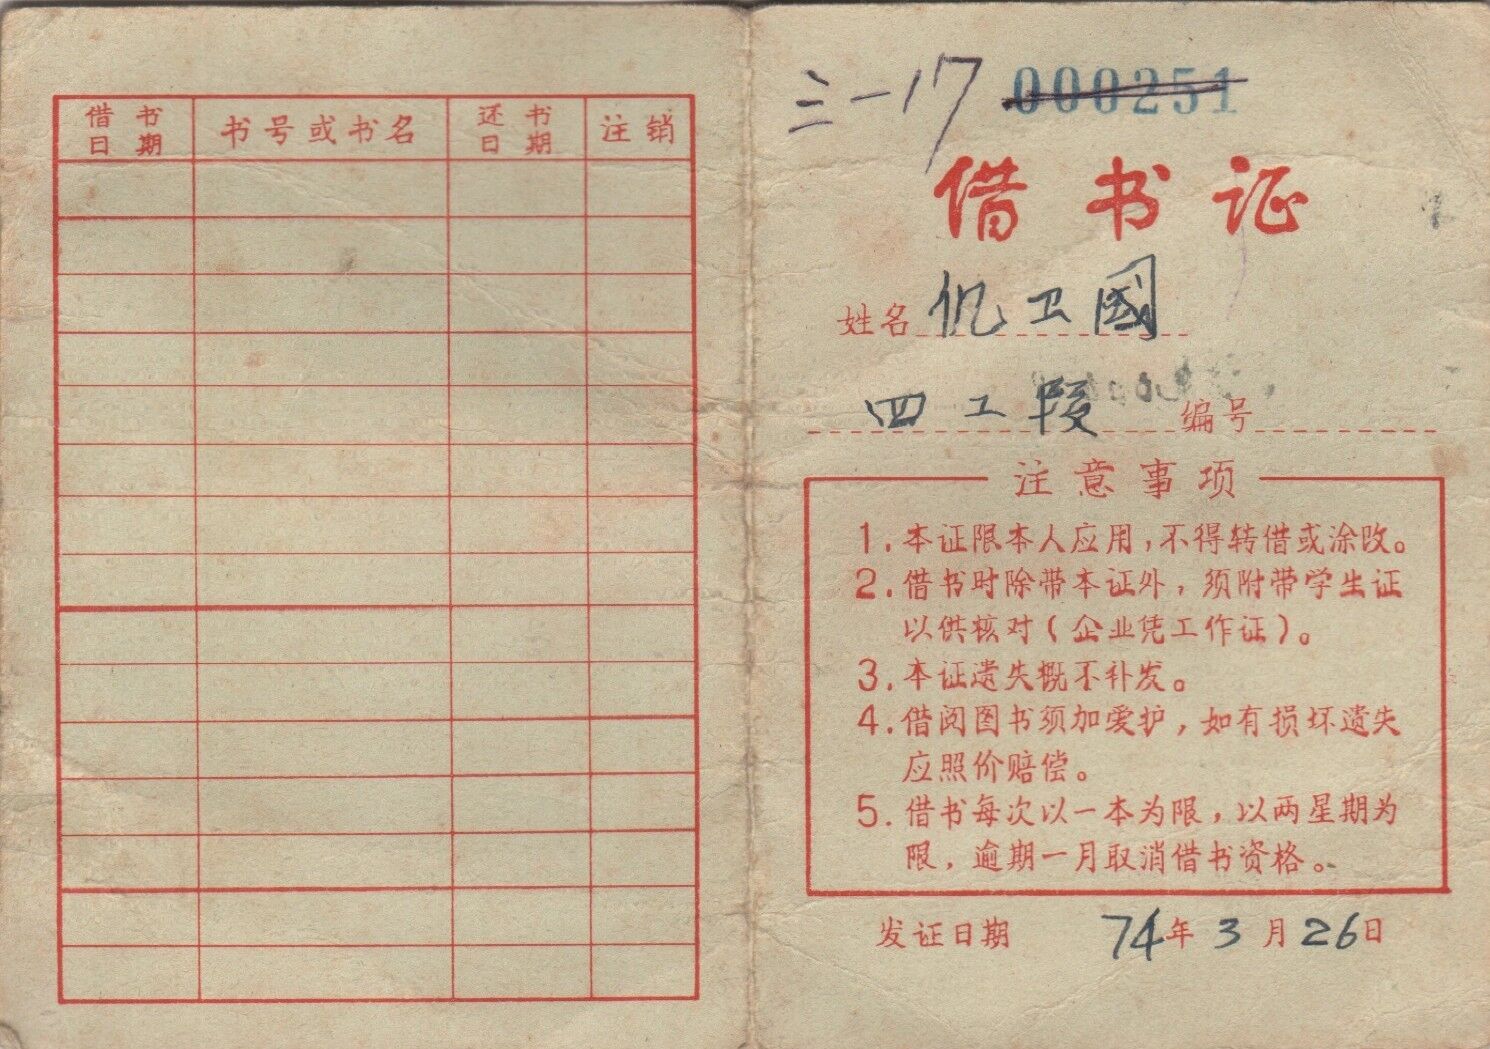 借书日期 书号或书名 还书日期 注销
三一17 000251
借书证
姓名 仉卫國
四工段 编号
注意事项
1. 本证限本人应用,不得转借或涂改。
2. 借书时除带本证外,须附带学生证
以供核对(企业凭工作证)。
3. 本证遗失概不补发。
4. 借阅图书须加爱护,如有损坏遗失
应照价赔偿。
5. 借书每次以一本为限,以两星期为
限,逾期一月取消借书资格。
发证日期 74年3月26日